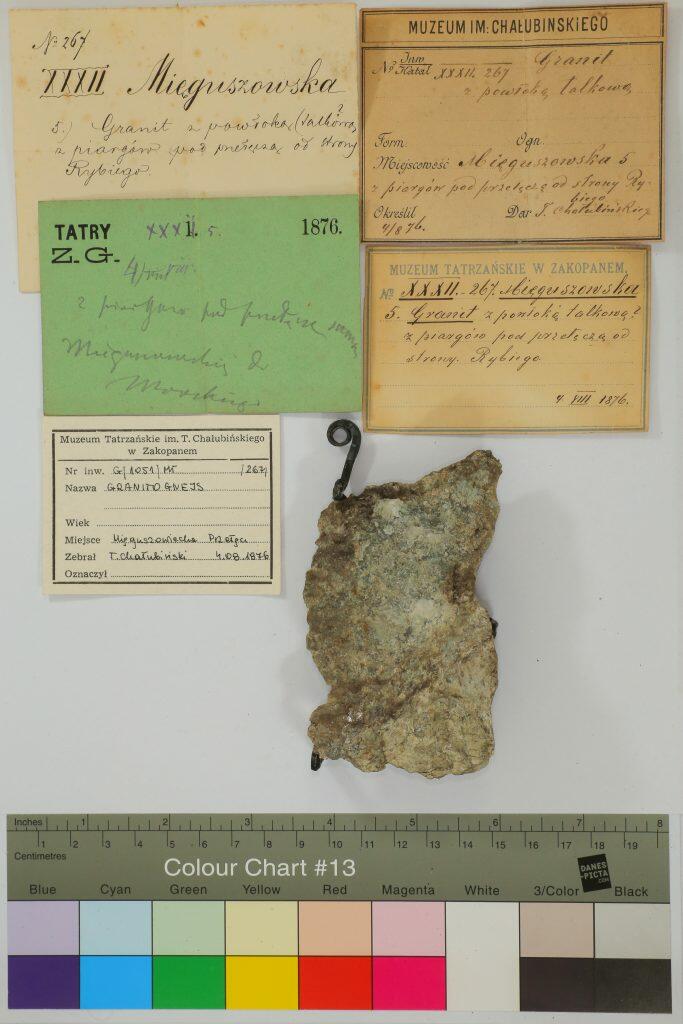 No 267
XXXII Mięguszowska
5.) Granit z powłoką (talkową?
z piargów pod przełęczą od strony
Rybiego.
MUZEUM IM: CHAŁUBIŃSKIEGO
No Inw Katal XXXII. 267 Granit
z powłoką talkową
Form. Ogn.
Miejscowość Mięguszowska 5
z piargów pod przełęczą od strony Ry-
biego
Określił Dar T. Chałubińskiego
4/8 76.
TATRY XXXII. 5. 1876.
Z. G.
4/VIII
z piargów pod przełęczą
do
Morskiego
MUZEUM TATRZAŃSKIE W ZAKOPANEM,
No XXXII.-267. Mięguszowska
5. Granit z powłoką talkową?
z piargów pod przełęczą od
strony. Rybiego
4 VIII 1876.
Muzeum Tatrzańskie im. T. Chałubińskiego
w Zakopanem
Nr inw. G/1051/MT /267/
Nazwa GRANITOGNEJS
Wiek
Miejsce Mięguszowiecka Przełęcz
Zebrał T. Chałubiński 4.08.1876
Oznaczył
Inches 1 2 3 4 5 6 7 8
Centimetres 1 2 3 4 5 6 7 8 9 10 11 12 13 14 15 16 17 18 19
Colour Chart #13
DANES
-PICTA
.COM
Blue Cyan Green Yellow Red Magenta White 3/Color Black